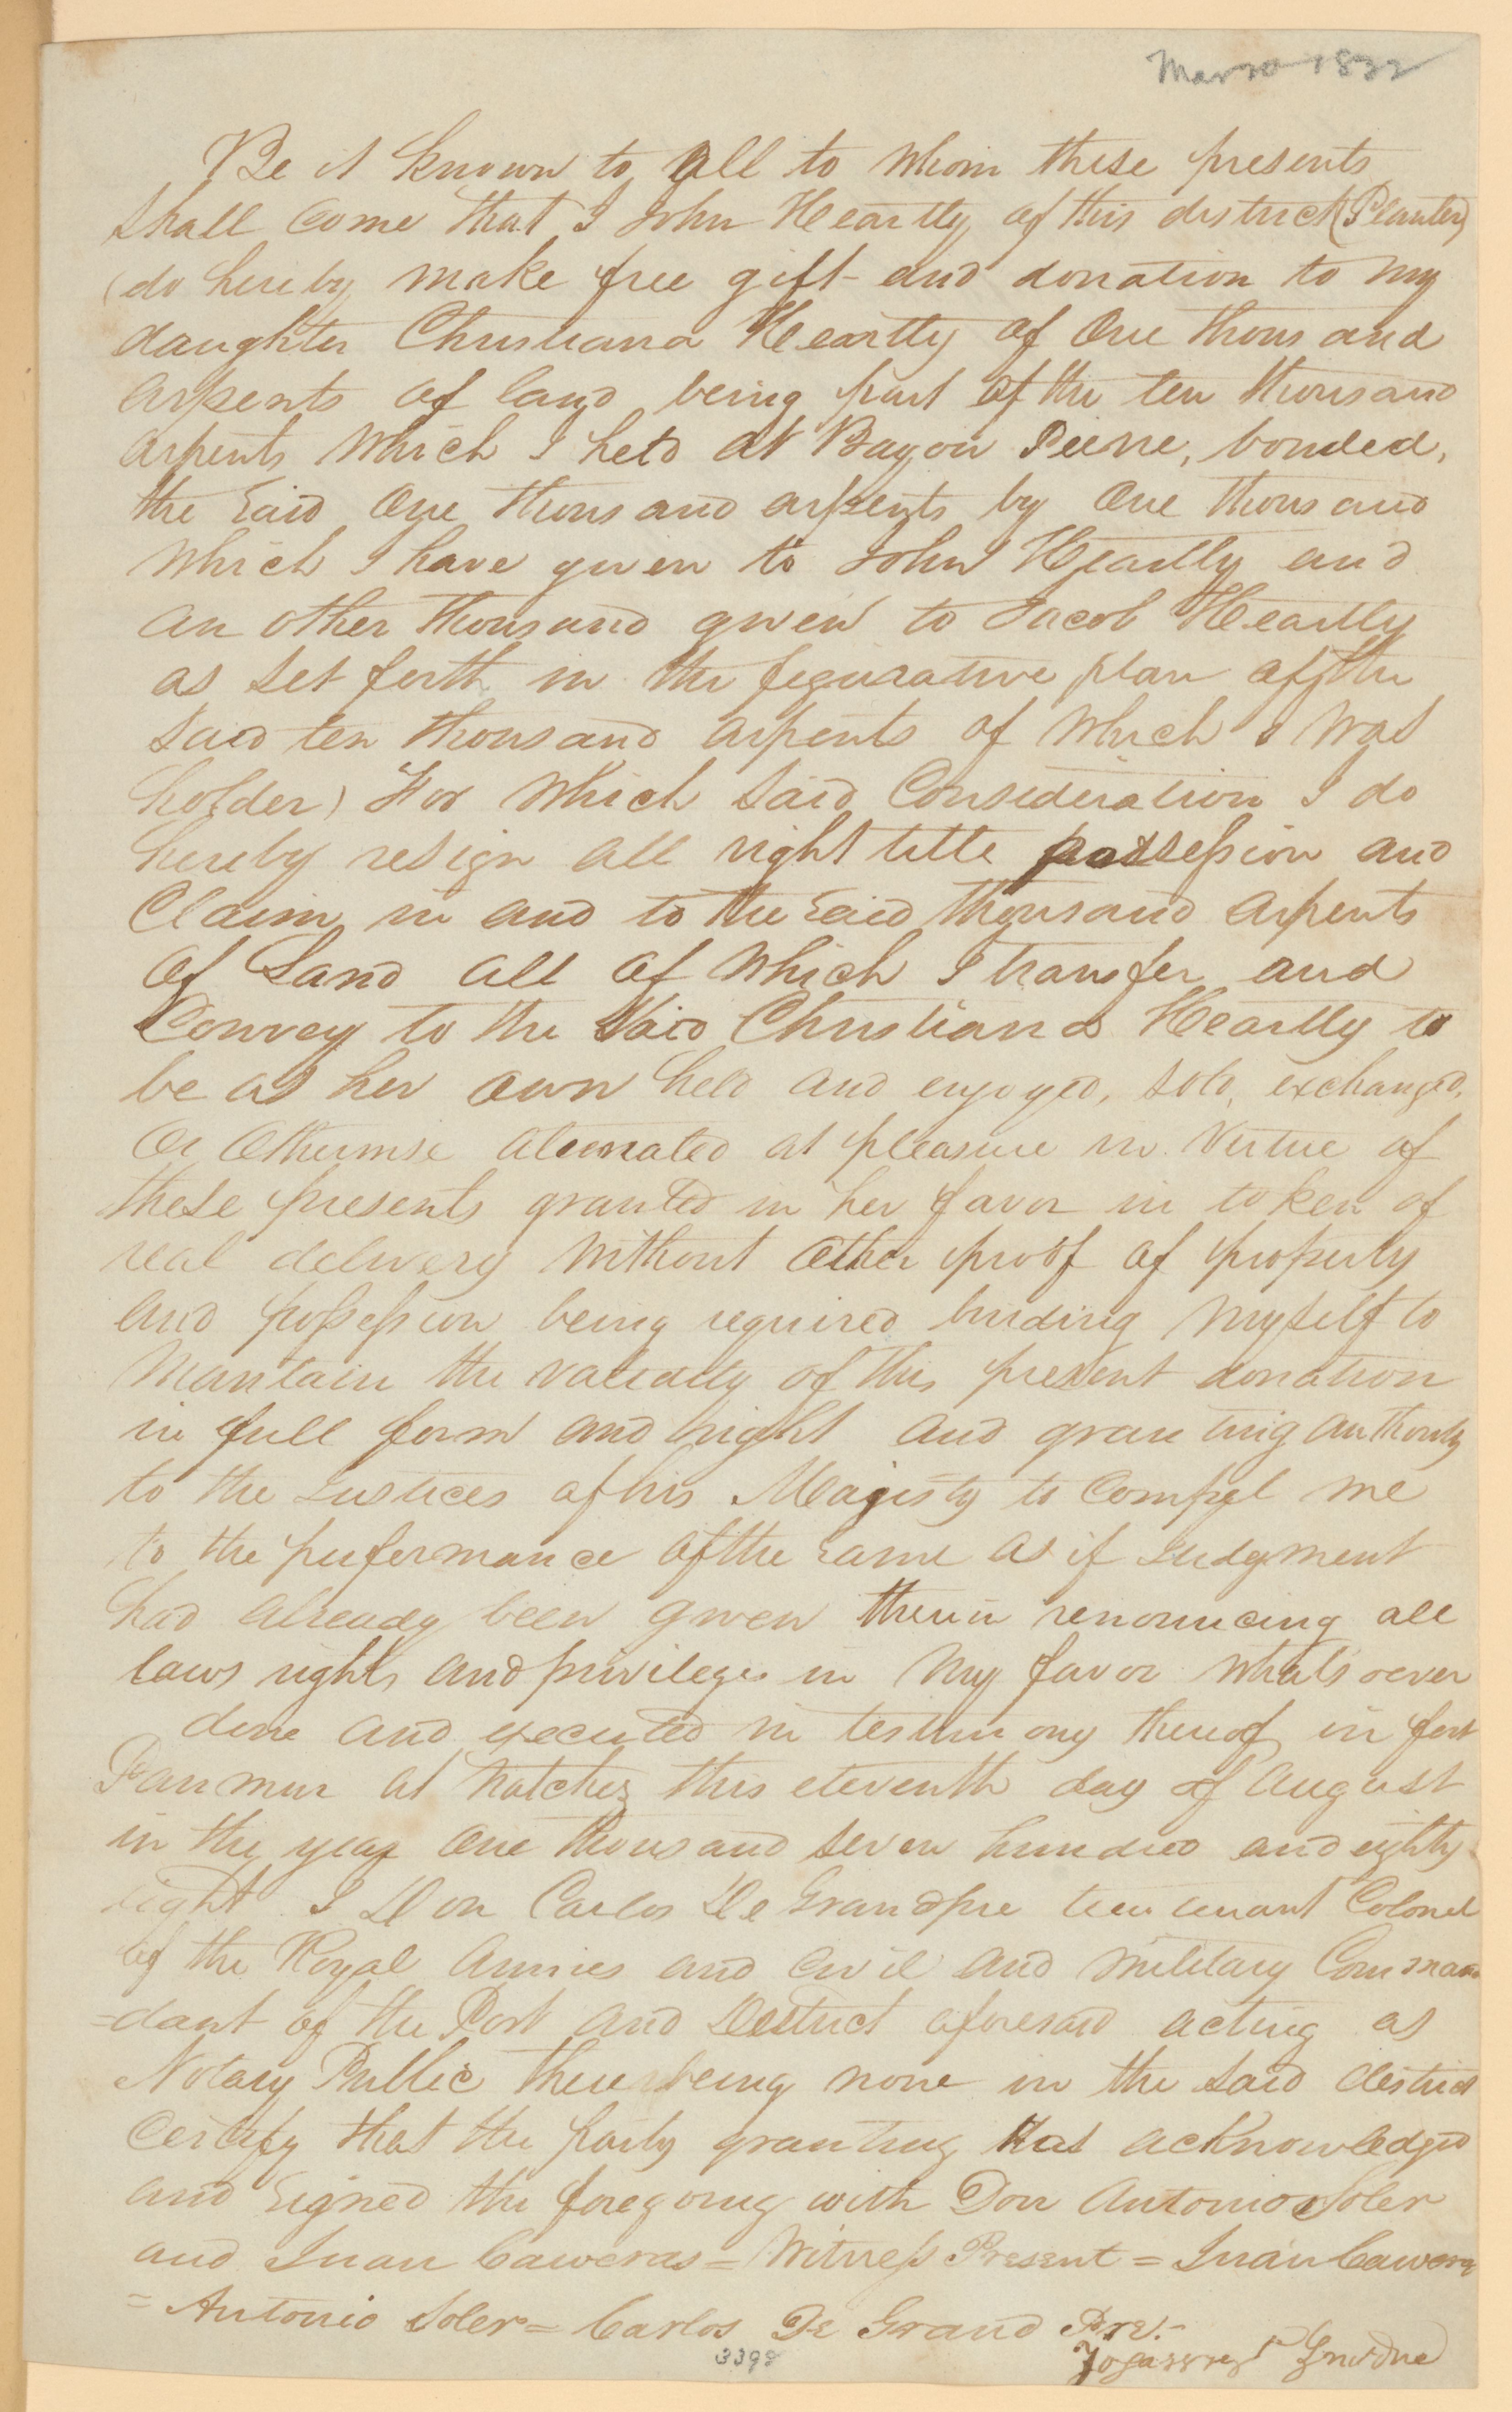 Mar 20 1822
Be it known to all to whom these presents
shall come that I John Heartly of this district (Planter)
(do hereby make free gift and donation to my
daughter Christiana Heartly of One thousand
arpents of land being part of the ten thousand
arpents which I held at Bayou Pierre, bonded,
the said One thousand arpents by One thousand
which I have given to John Heartly and
an other thousand given to Jacob Heartly
as set forth in the figurative plan of the
said ten thousand arpents of which I was
holder) For which said Consideration I do
hereby resign all right title possession and
Claim in and to the said thousand arpents
of Land all of which I transfer and
Convey to the said Christiana Heartly to
be as her own held and enjoyed, sold, exchanged,
Or Otherwise alienated at pleasure in Virtue of
these presents granted in her favor in token of
real delivery without other proof of property
and possession being required binding myself to
Mantain the validity of this present donation
in full form and right and granting authority
to the Justices of his Majesty to Compel me
to the performance of the same as if Judgment
had already been given therein renouncing all
laws rights and privileges in my favor whatsoever
done and executed in testimony thereof in fort
Panmur at Natchez this eleventh day of August
in the year One thousand seven hundred and eighty
eight I Don Carlos De Grandpre lieutenant Colonel
of the Royal Armies and Civil and Military Comman
=dant of the Post and District aforesaid acting as
Notary Public there being none in the said district
Certify that the party granting has acknowledged
and signed the foregoing with Don Antonio Soler
and Juan Caweras = Witness Present = Juan Cawera
= Antonio Soler = Carlos De Grand Pre.-
3398